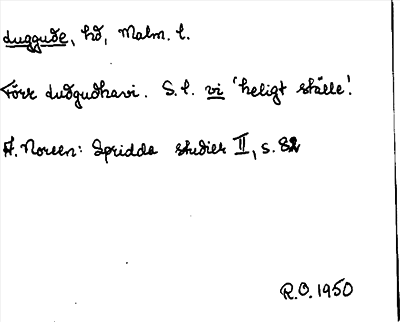 duggude, hd, Malm. l.
Förr dudgudhavi. S. l. vi 'heligt ställe'.
A. Noreen: Spridda studier II, s. 82
R.O. 1950